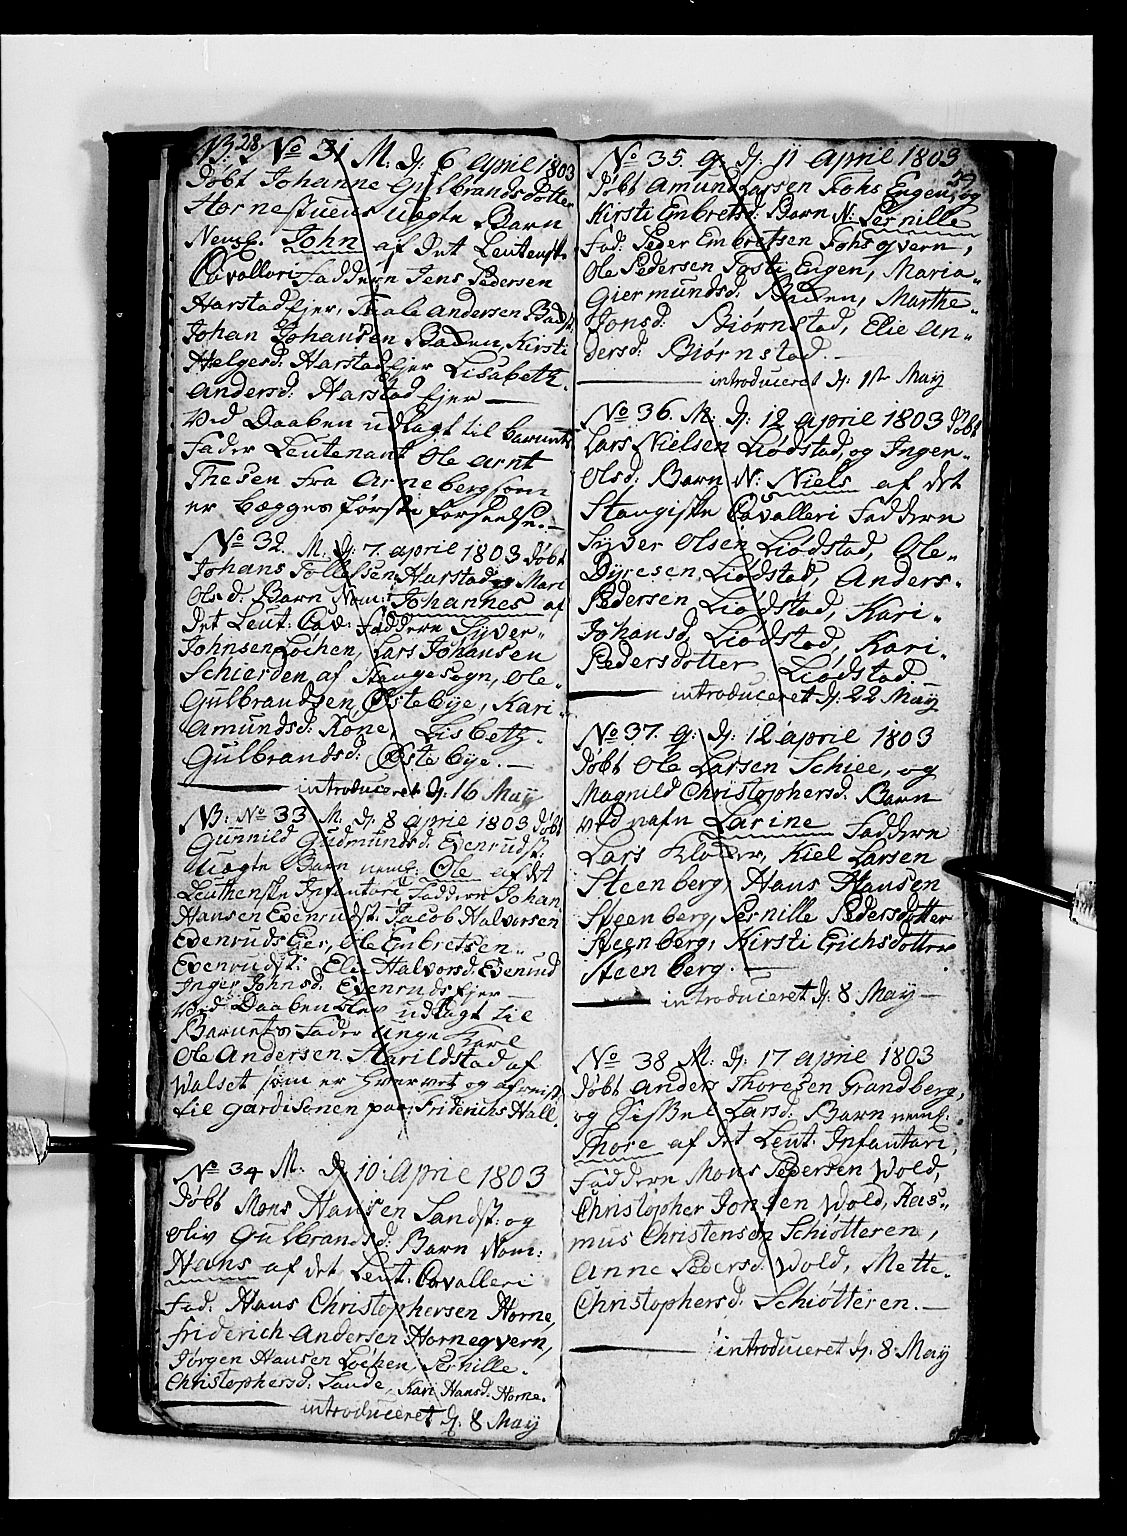 28.
NB: No 31 M. d: 6 April 1803
döbt Johanne Gulbrandsdotter
Hornestuens uægte Barn
Nevnl. John af det Leutensk.
Cavalleri Faddern Jens Pedersen
Harstad Ejer, Thale Andersen
Johan Johansen Baden, Kirsti
Helgesd: Harstad Ejer Lisabeth
Andersd: Harstad Ejer —
Ved Daaben udlagt til barnets
Fader Leutenant Ole Arnt
Thesen fra Arneberg som
er begges förste forseelse. —
No 32. M. d: 7. april 1803 döbt
Johans Tollefsen Harstad og Mari
Olsd: Barn Nom: Johannes af
det Leut: Cav: Faddern Syver
Johnsen Löchen, Lars Johansen
Schierden af Stangesogn, Ole
Gulbrandsen Östebye, Kari
Amundsd: Kone, Lisbeth
Gulbrandsd: Östebye. —
introduceret d: 16 Maij
NB: No 33 M. d: 8 april 1803 döbt
Gunnild Gudmundsd: Evenrudst:
Uægte Barn nevnl: Ole af det
Leuthenske Infantori Faddern Johan
Hansen Evenrudst: Jacob Halvorsen
Evenruds Ejer, Ole Enbretsen
Evenrudst: Elie Halvorsd: Evenrud
Inger Johnsd: Evenruds Ejer —
Ved Daaben blev udlagt til
Barnets Fader unge Karl
Ole Andersen Starildstad af
Walset som er hvervet og
til gardisonen paa Friderichs Hall.
No 34 M: d: 10 April 1803
döbt Mons Hansen Sandst: og
Oliv Gulbrandsd: Barn Nom:
Hans af det Leut: Cavalleri
Fad: Hans Christophersen Horne,
Friderich Andersen Horneqvern,
Jörgen Hansen Löchen, Pernille
Christophersd: Sande, Kari Hansd: Horne.
introduceret d: 8 Maij
No 35. q: d: 11 April 1803
döbt Amund Larsen Fohs Engen, og
Kirsti Enbretsd: Barn N: Pernille
Fad: Peder Enbretsen Fohsqvern,
Ole Pedersen Engen, Maria
Giermundsd: Baden, Marthe
Jonsd: Biörnstad, Elie An-
dersd: Biörnstad. —
introduceret d: 1st May
No 36. M: d: 12 april 1803 döbt
Lars Nielsen Liödstad, og Inger
Olsd: Barn N: Niels af det
Stangiske Cavalleri Faddern
Syver Olsen Liödstad, Ole
Dyresen Liödstad, Anders
Pedersen Liödstad, Kari
Johansd: Liödstad, Kari
Pedersdotter Liödstad
introduceret d: 22 May
No 37. q: d: 12 april 1803
döbt Ole Larsen Schiee, og
Magnild Christophersd: Barn
ved nafn Larine Faddern
Lars Kloder, Kiel Larsen
Steenberg, Hans Hansen
Steenberg, Pernille Pedersdotter
Steenberg, Kirsti Erichsdotter
Steenberg. —
introduceret d: 8 May —
No 38 M: d: 17 april 1803
döbt Anders Thoresen Grandberg,
og Sisbel Larsd: Barn nevnl.
Thore af det Leut: Infantari,
Faddern Mons Pedersen Wold,
Christopher Jonsen Wold, Ras-
mus Christensen Schiötteren,
Anne Pedersd: Wold, Mette
Christophersd: Schiötteren. —
introduceret d: 8 May